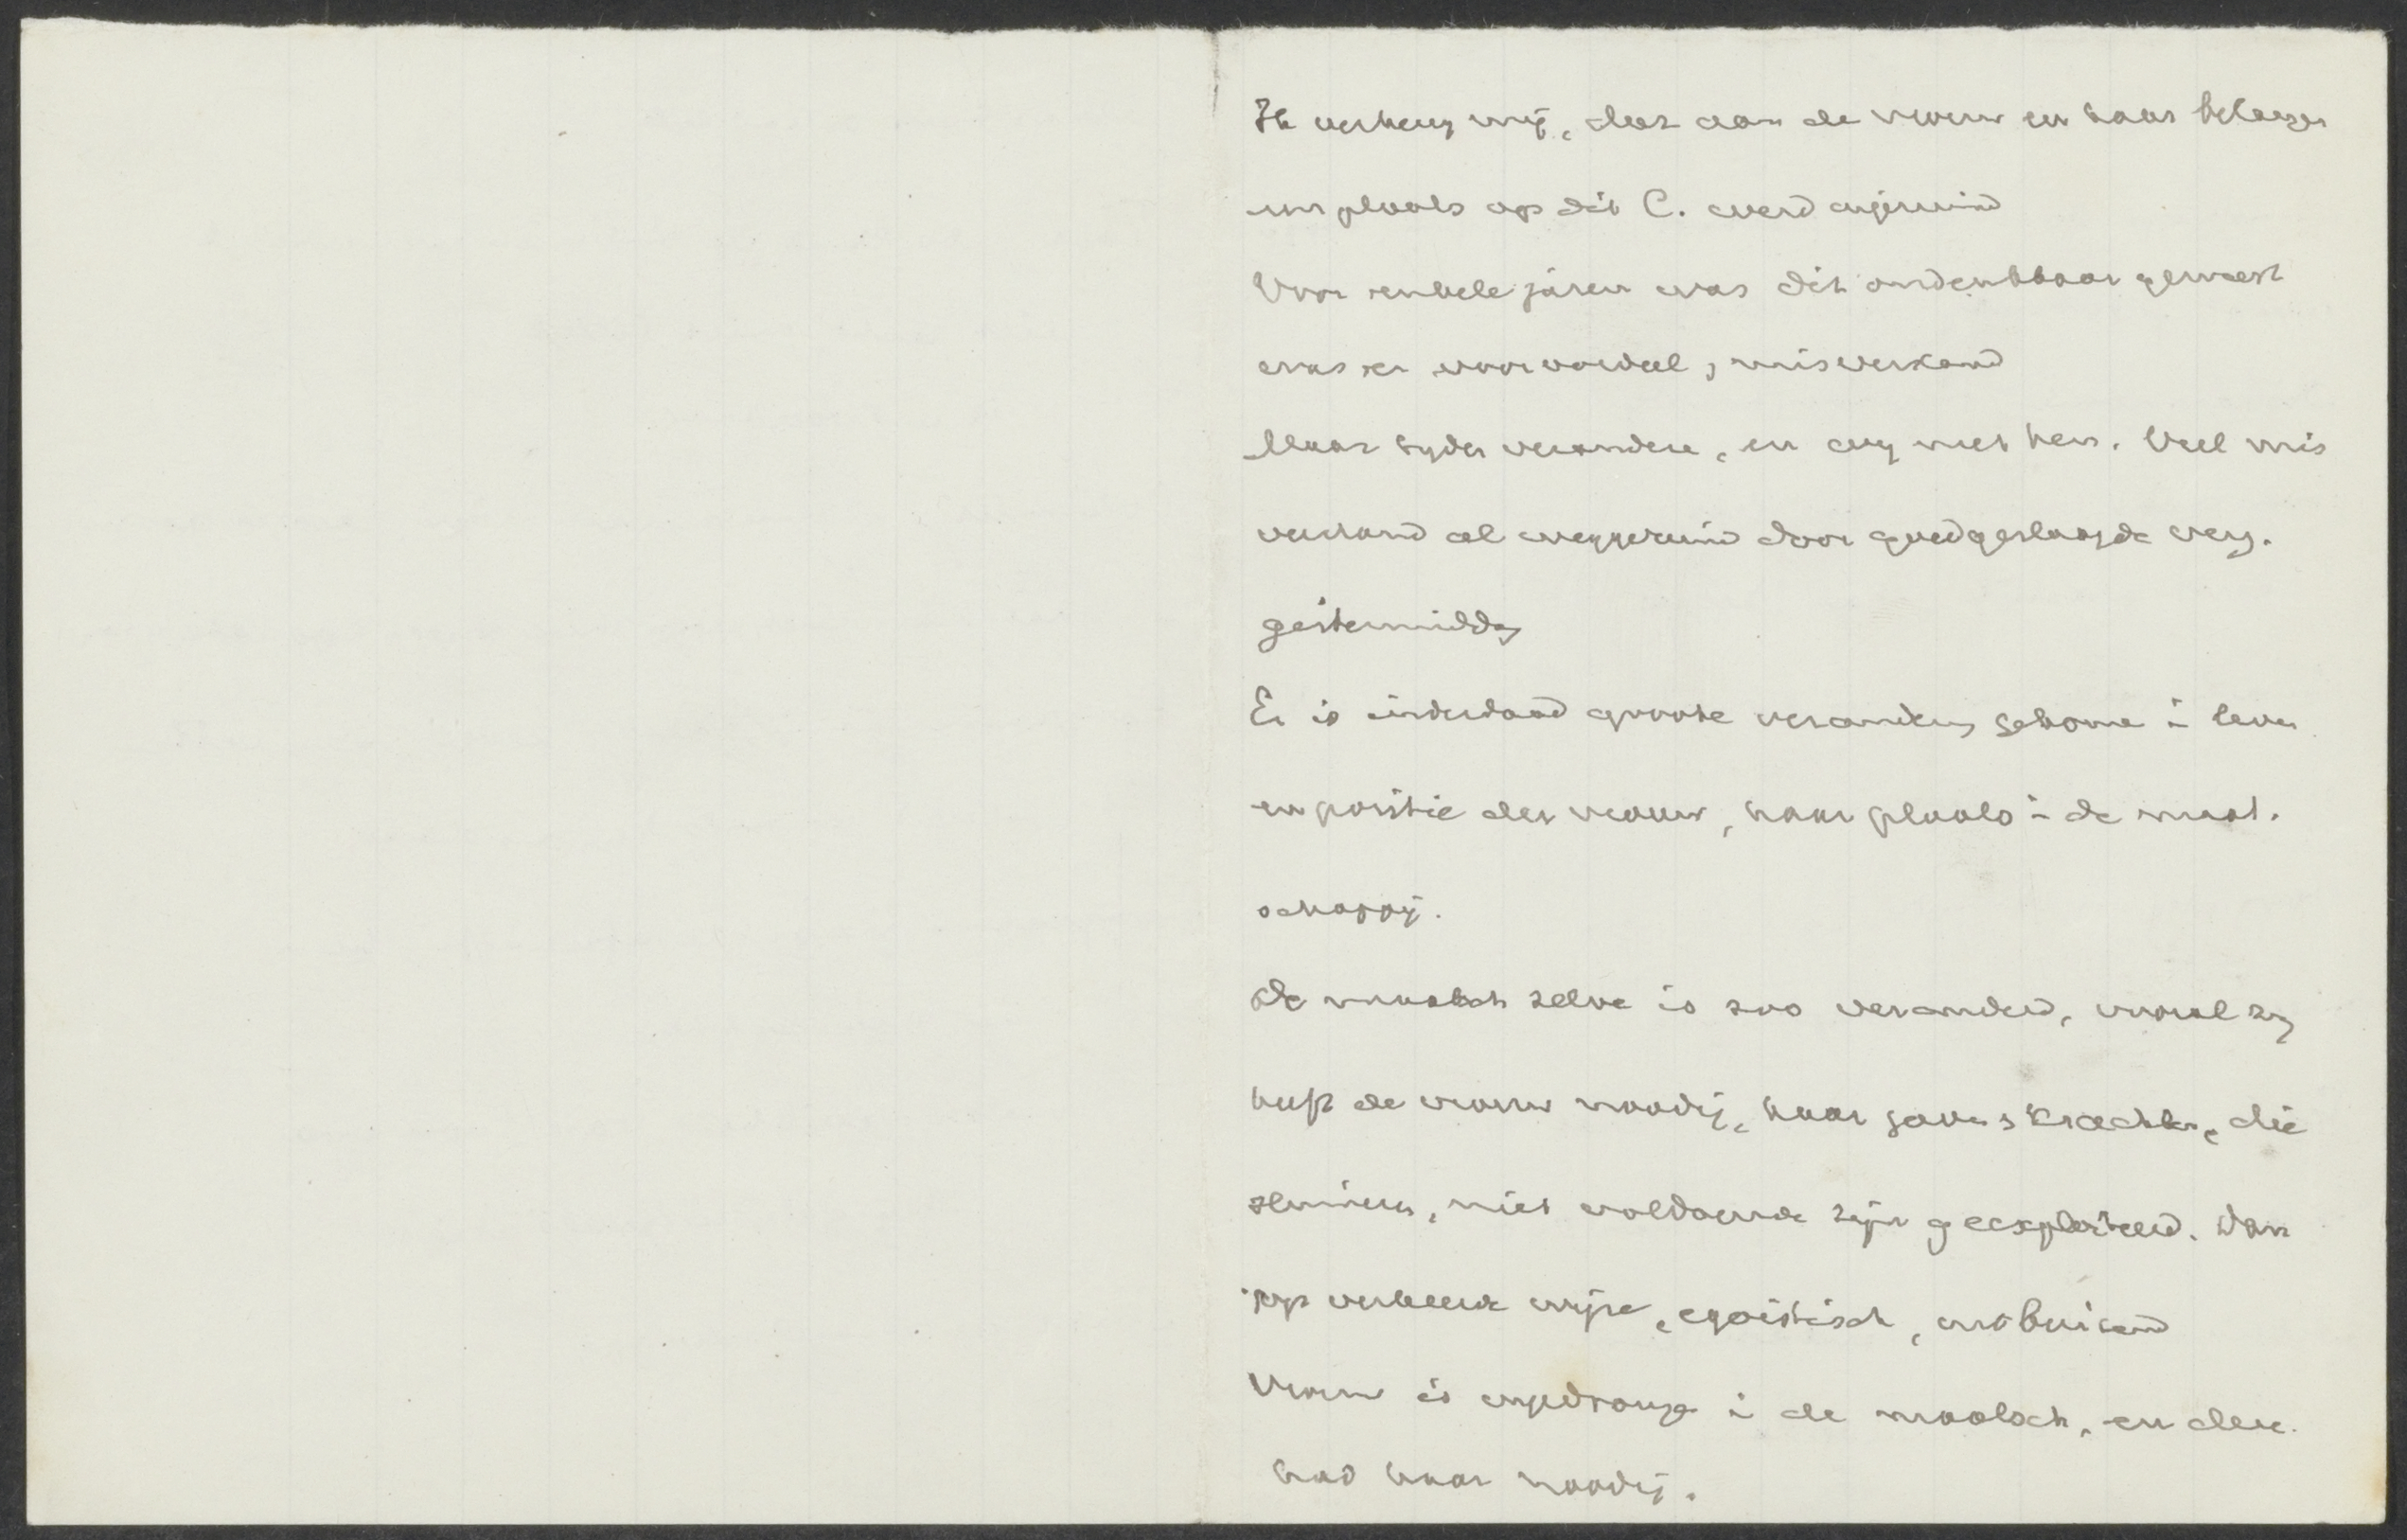 Ik verheug mij, dat aan de vrouw en haar belangen
een plaats op dit C. werd ingeruimd
Voor enkele jaren was dit ondenkbaar geweest
was er vooroordeel, misverstand
Maar tyden veranderen, en wy met hen. Veel mis
verstand al weggeruimd door goedgeslaagde verg.
gistermiddag
Er is inderdaad groote verandering gekomen in leven
en positie der vrouw, haar plaats in de maat.
schappij.
de maatsch zelve is zoo veranderd, vooral zy
heeft de vrouw noodig, haar gaven & krachten, die
sluimeren, niet voldoende zijn geexploiteerd. dan
op verkeerde wijze, egoistisch, misbruikend
Vrouw is ingedrongen in de maatsch, en deze
had haar noodig.